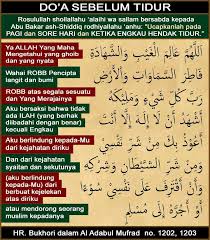 DO'A SEBELUM TIDUR
Rosulullah shollallahu 'alaihi wa sallam bersabda kepada
Abu Bakar ash-Shiddiq rodhiyallahu 'anhu: "Ucapkanlah pada
PAGI dan SORE HARI dan KETIKA ENGKAU HENDAK TIDUR."
Ya ALLAH Yang Maha
Mengetahui yang ghoib
dan yang nyata
اللَّهُمَّ عَالِمَ الْغَيْبِ وَالشَّهَادَةِ
Wahai ROBB Pencipta
langit dan bumi
فَاطِرَ السَّمَاوَاتِ وَالْأَرْضِ
ROBB atas segala sesuatu
dan Yang Merajainya
رَبَّ كُلِّ شَيْءٍ وَمَلِيكَهُ
Aku bersaksi bahwa tidak
ada ILAH (yang berhak
dibadahi dengan benar)
kecuali Engkau
أَشْهَدُ أَنْ لَا إِلَهَ إِلَّا أَنْتَ
Aku berlindung kepada-Mu
dari kejahatan diriku
أَعُوذُ بِكَ مِنْ شَرِّ نَفْسِي
Dan dari kejahatan
syaitan dan sekutunya
وَمِنْ شَرِّ الشَّيْطَانِ وَشِرْكِهِ
(aku berlindung
kepada-Mu) dari
berbuat kejelekan
atas diriku
وَأَنْ أَقْتَرِفَ عَلَى نَفْسِي سُوءًا
atau mendorong seorang
muslim kepadanya
أَوْ أَجُرَّهُ إِلَى مُسْلِمٍ
HR. Bukhori dalam Al Adabul Mufrad no. 1202, 1203